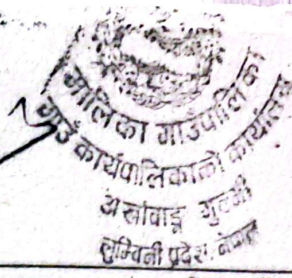 मालिका गाउँपालिका
गाउँ कार्यपालिकाको कार्यालय
गुल्मी
लुम्बिनी प्रदेश, नेपाल